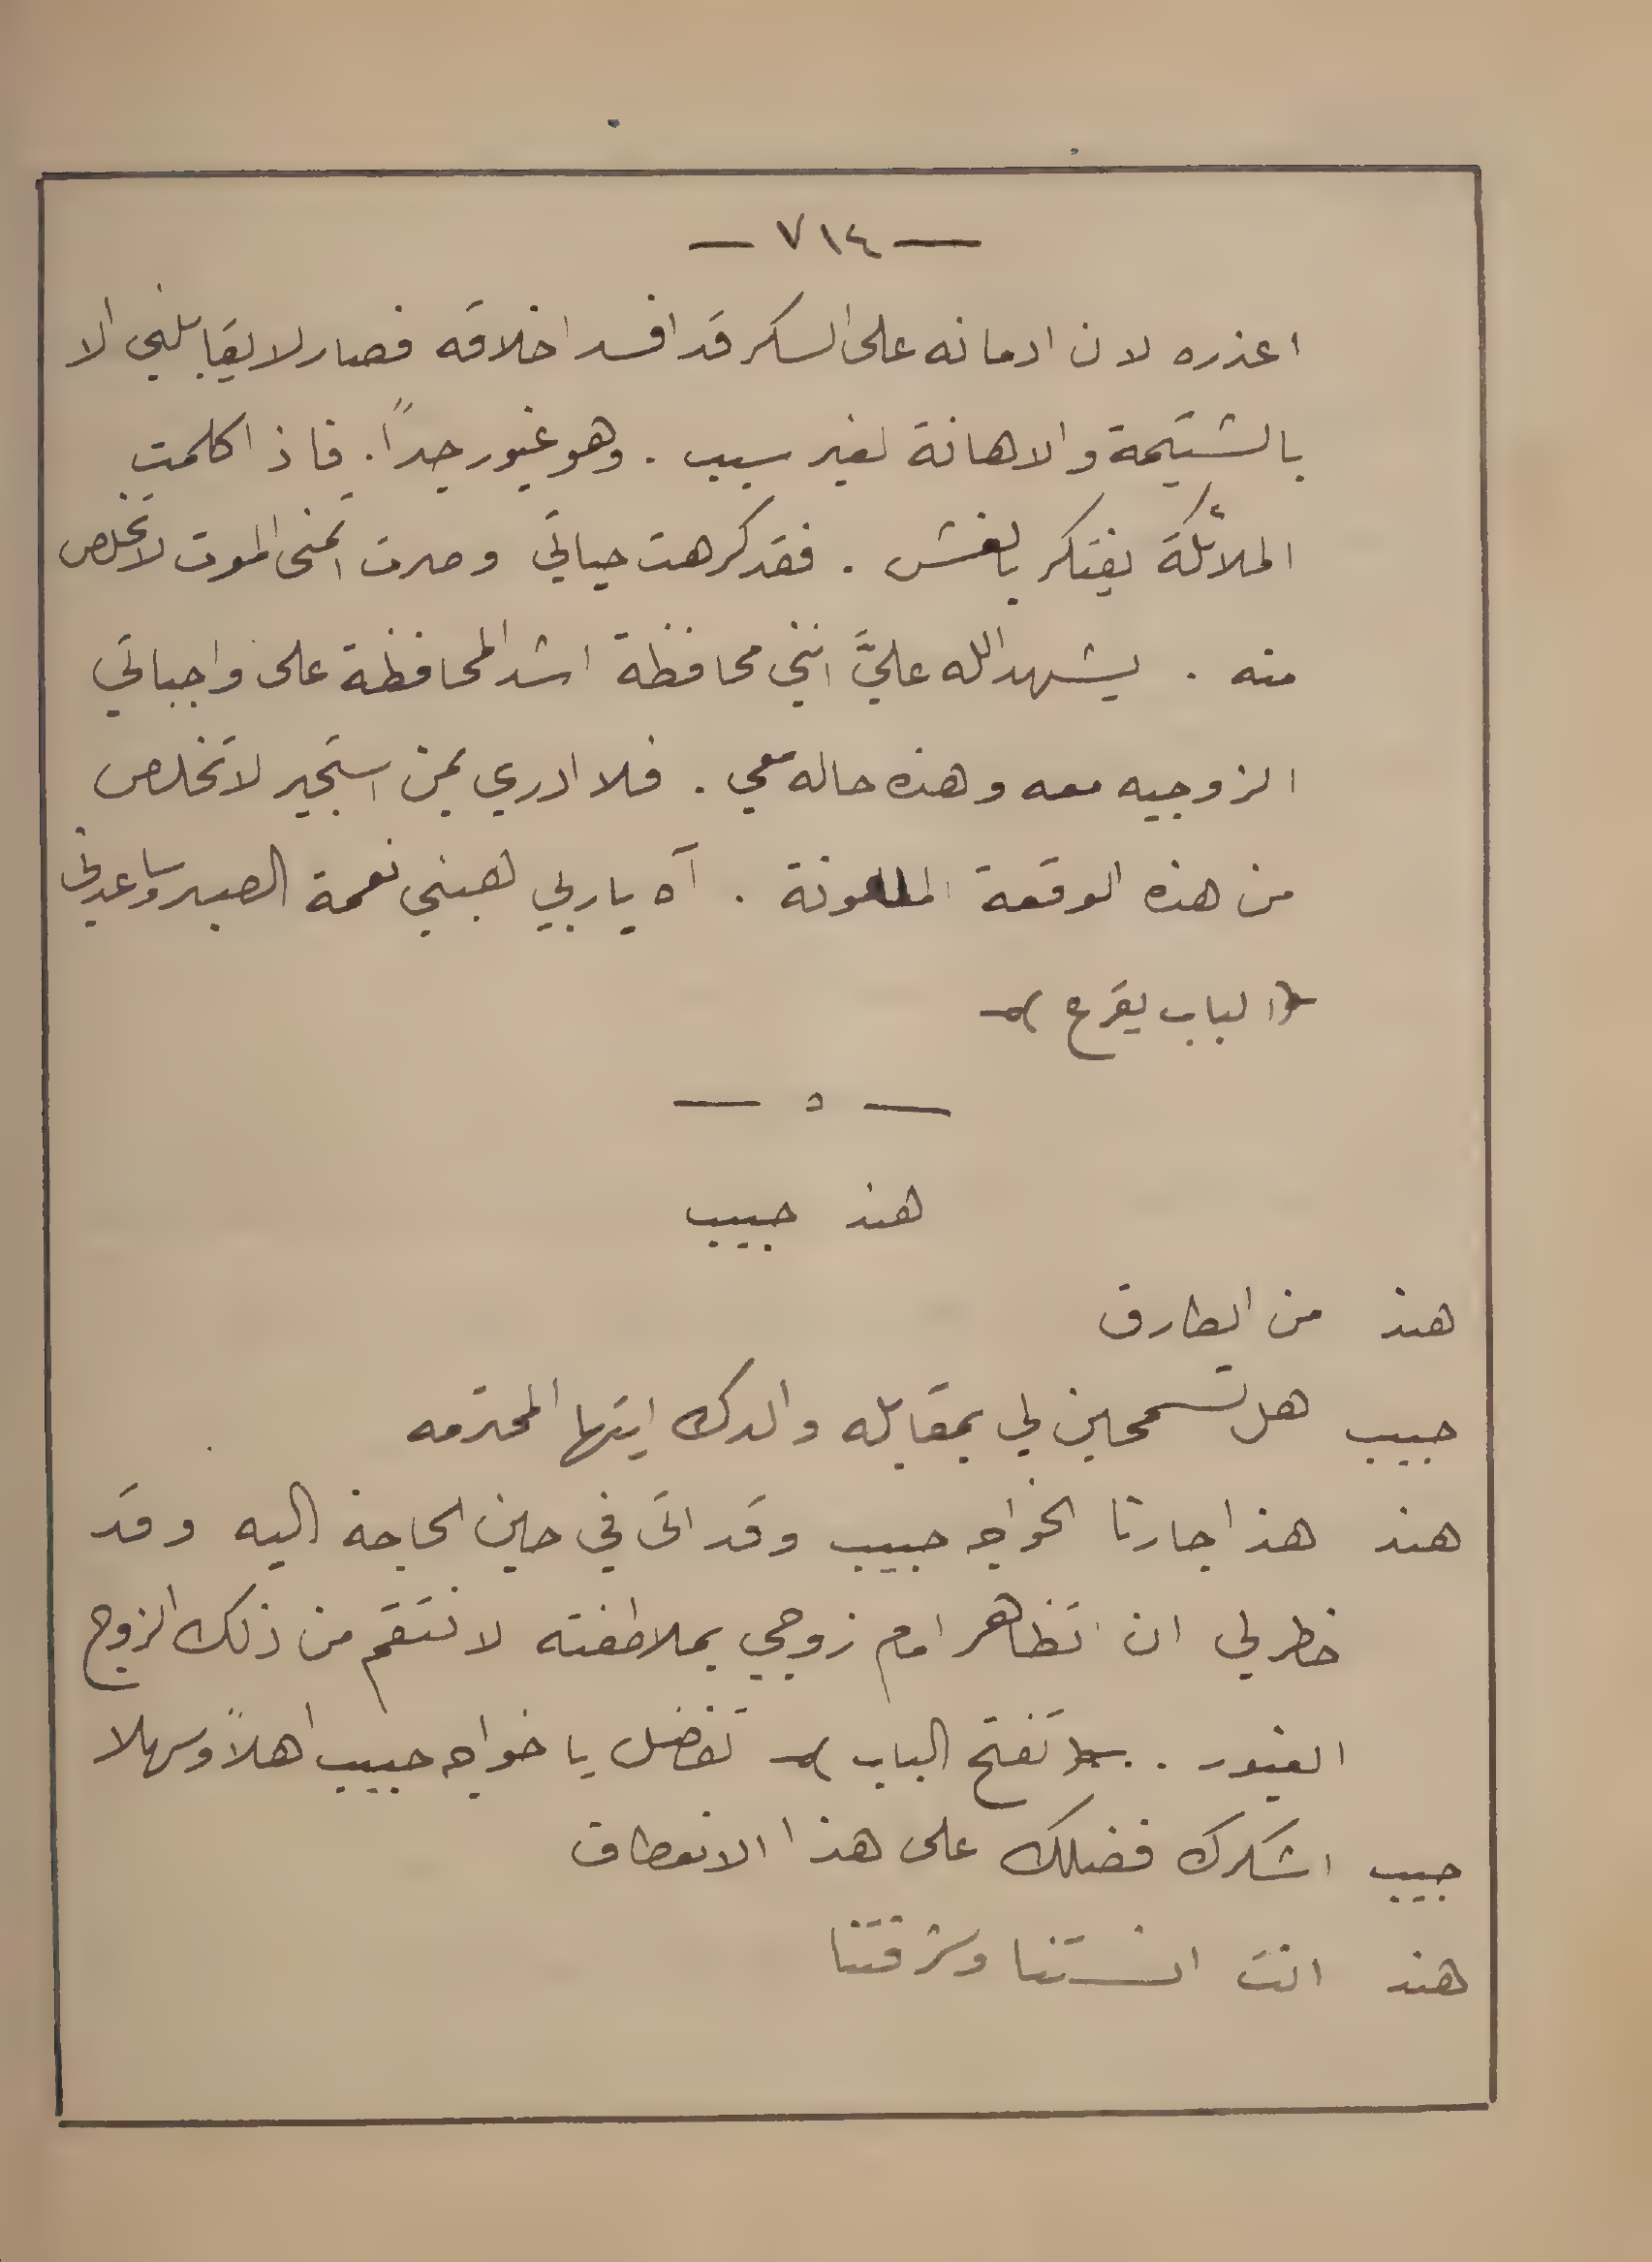 — ٧١٤ —
اعذره لان ادمانه على السكر قد افسد اخلاقه فصار لا يقابلني الا
بالشتيمة والاهانة لغير سبب . وهو غيور جداً . فاذا كلمت
الملائكة يفتكر بالغش . فقد كرهت حياتي وصرت اتمنى الموت لاتخلص
منه . يشهد الله عليَّ انني محافظة اشد المحافظة على واجباتي
الزوجيه معه وهذه حاله معي . فلا ادري بمن استجير لاتخلص
من هذه الوقعة الملعونة . آه يا ربي هبني نعمة الصبر وساعدني
﴿ الباب يقرع ﴾
— ٥ —
هند حبيب
هند من الطارق
حبيب هل تسمحين لي بمقابله والدك ايتها المحترمه
هند هذا جارنا الخواجه حبيب وقد اتى في حين الحاجة اليه وقد
خطر لي ان اتظاهر امام زوجي بملاطفته لانتقم من ذلك الزوج
الغيور . . ﴿ تفتح الباب ﴾ تفضل يا خواجه حبيب اهلاً وسهلا
حبيب اشكرك فضلك على هذا الانعطاف
هند انت انستنا وشرفتنا